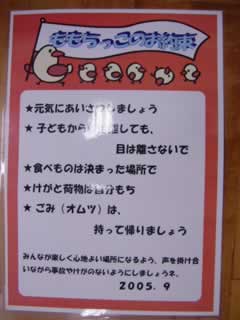 ももちっこのお約束
★元気にあいさつしましょう
★子どもから
しても、
目は離さないで
★食べものは決まった場所で
★けがと荷物は自分もち
★ごみ(オムツ)は、
持って帰りましょう
みんなが楽しく心地よい場所になるよう、声を掛け合
いながら事故やけがのないようにしましょうネ。
2005.9